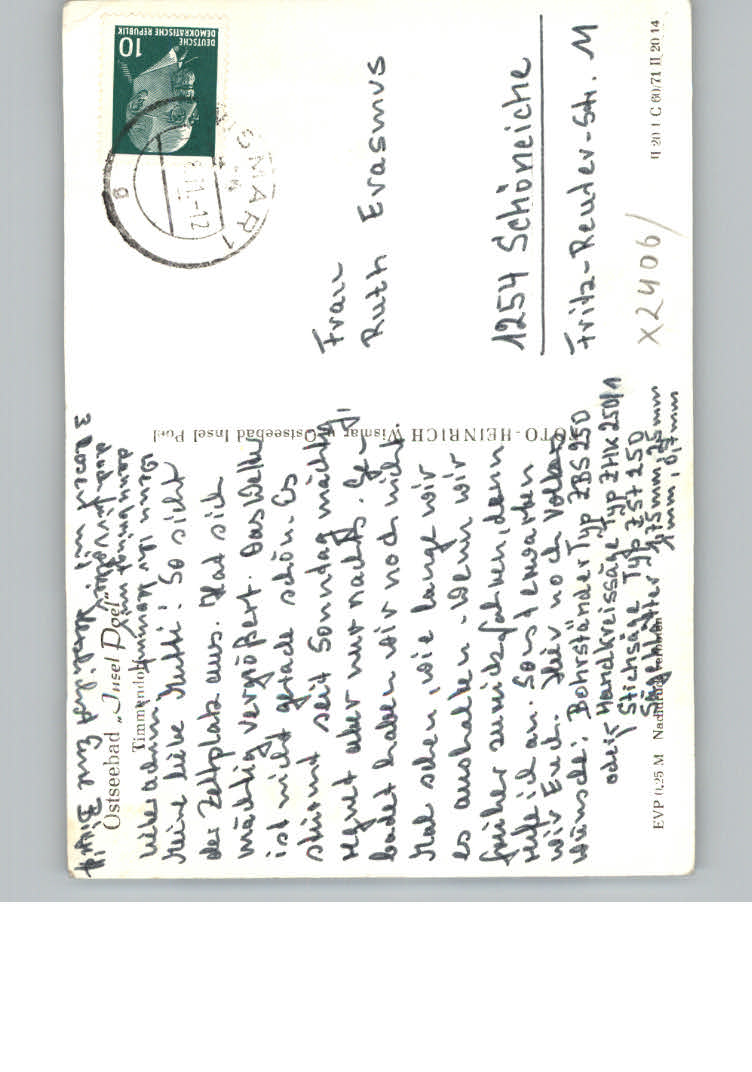 Ostseebad „Insel Poel"
Timmendorf
Meine liebe Mutti! So sieht
der Zeltplatz aus. Hat sich
mächtig vergrößert. Das Wetter
ist nicht gerade schön. Es
stürmt seit Sonntag mächtig
regnet aber nur nachts. Ge-
badet haben wir noch nicht.
Mal sehen, wie lange wir
es aushalten. Wenn wir
früher zurückfahren, dann
rufe ich an. Sonst erwarten
wir Euch. Hier noch Vottas
Wünsche: Bohrständer Typ ZBS 250
oder Handkreissäge Typ ZHK 250/1
Stichsäge Typ ZST 250
Sägeblätter 1,75 mm, 25 mm
1 mm, 0,7 mm
Wenn ihr kommt
dann bringt mir
doch für
3 Dosen mit. Herzlichst Eure Birgit
EVP 0,25 M Nachdruck verboten
FOTO-HEINRICH Wismar u. Ostseebad Insel Poel
DEUTSCHE
DEMOKRATISCHE REPUBLIK
10
WISMAR 1
71.-12
a
Frau
Ruth Erasmus
1254 Schöneiche
Fritz-Reuter-Str. 11
X2406/
II 20 1 C 60/71 II 20 14